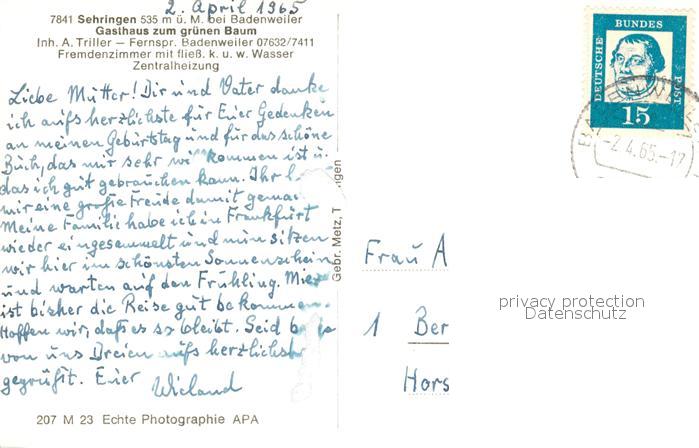 2. April 1965
7841 Sehringen 535 m ü. M. bei Badenweiler
Gasthaus zum grünen Baum
Inh. A. Triller – Fernspr. Badenweiler 07632/7411
Fremdenzimmer mit fließ. k. u. w. Wasser
Zentralheizung
Liebe Mutter! Dir und Vater danke
ich aufs herzlichste für Euer Gedenken
an meinen Geburtstag und für das schöne
Buch, das mir sehr willkommen ist u.
das ich gut gebrauchen kann. Ihr
mir eine große Freude damit
Meine Familie habe ich in Frankfurt
wieder eingesammelt und nun sitzen
wir hier im schönsten Sonnenschein
und warten auf den Frühling. Mir
ist bisher die Reise gut bekommen.
Hoffen wir, daß es so bleibt. Seid
von uns Dreien aufs herzlichste
gegrüßt. Euer Wieland
207 M 23 Echte Photographie APA
Gebr. Metz, T ingen
DEUTSCHE BUNDES POST
15
-2.4.65.-17
Frau A
1 Ber
Hors
privacy protection
Datenschutz